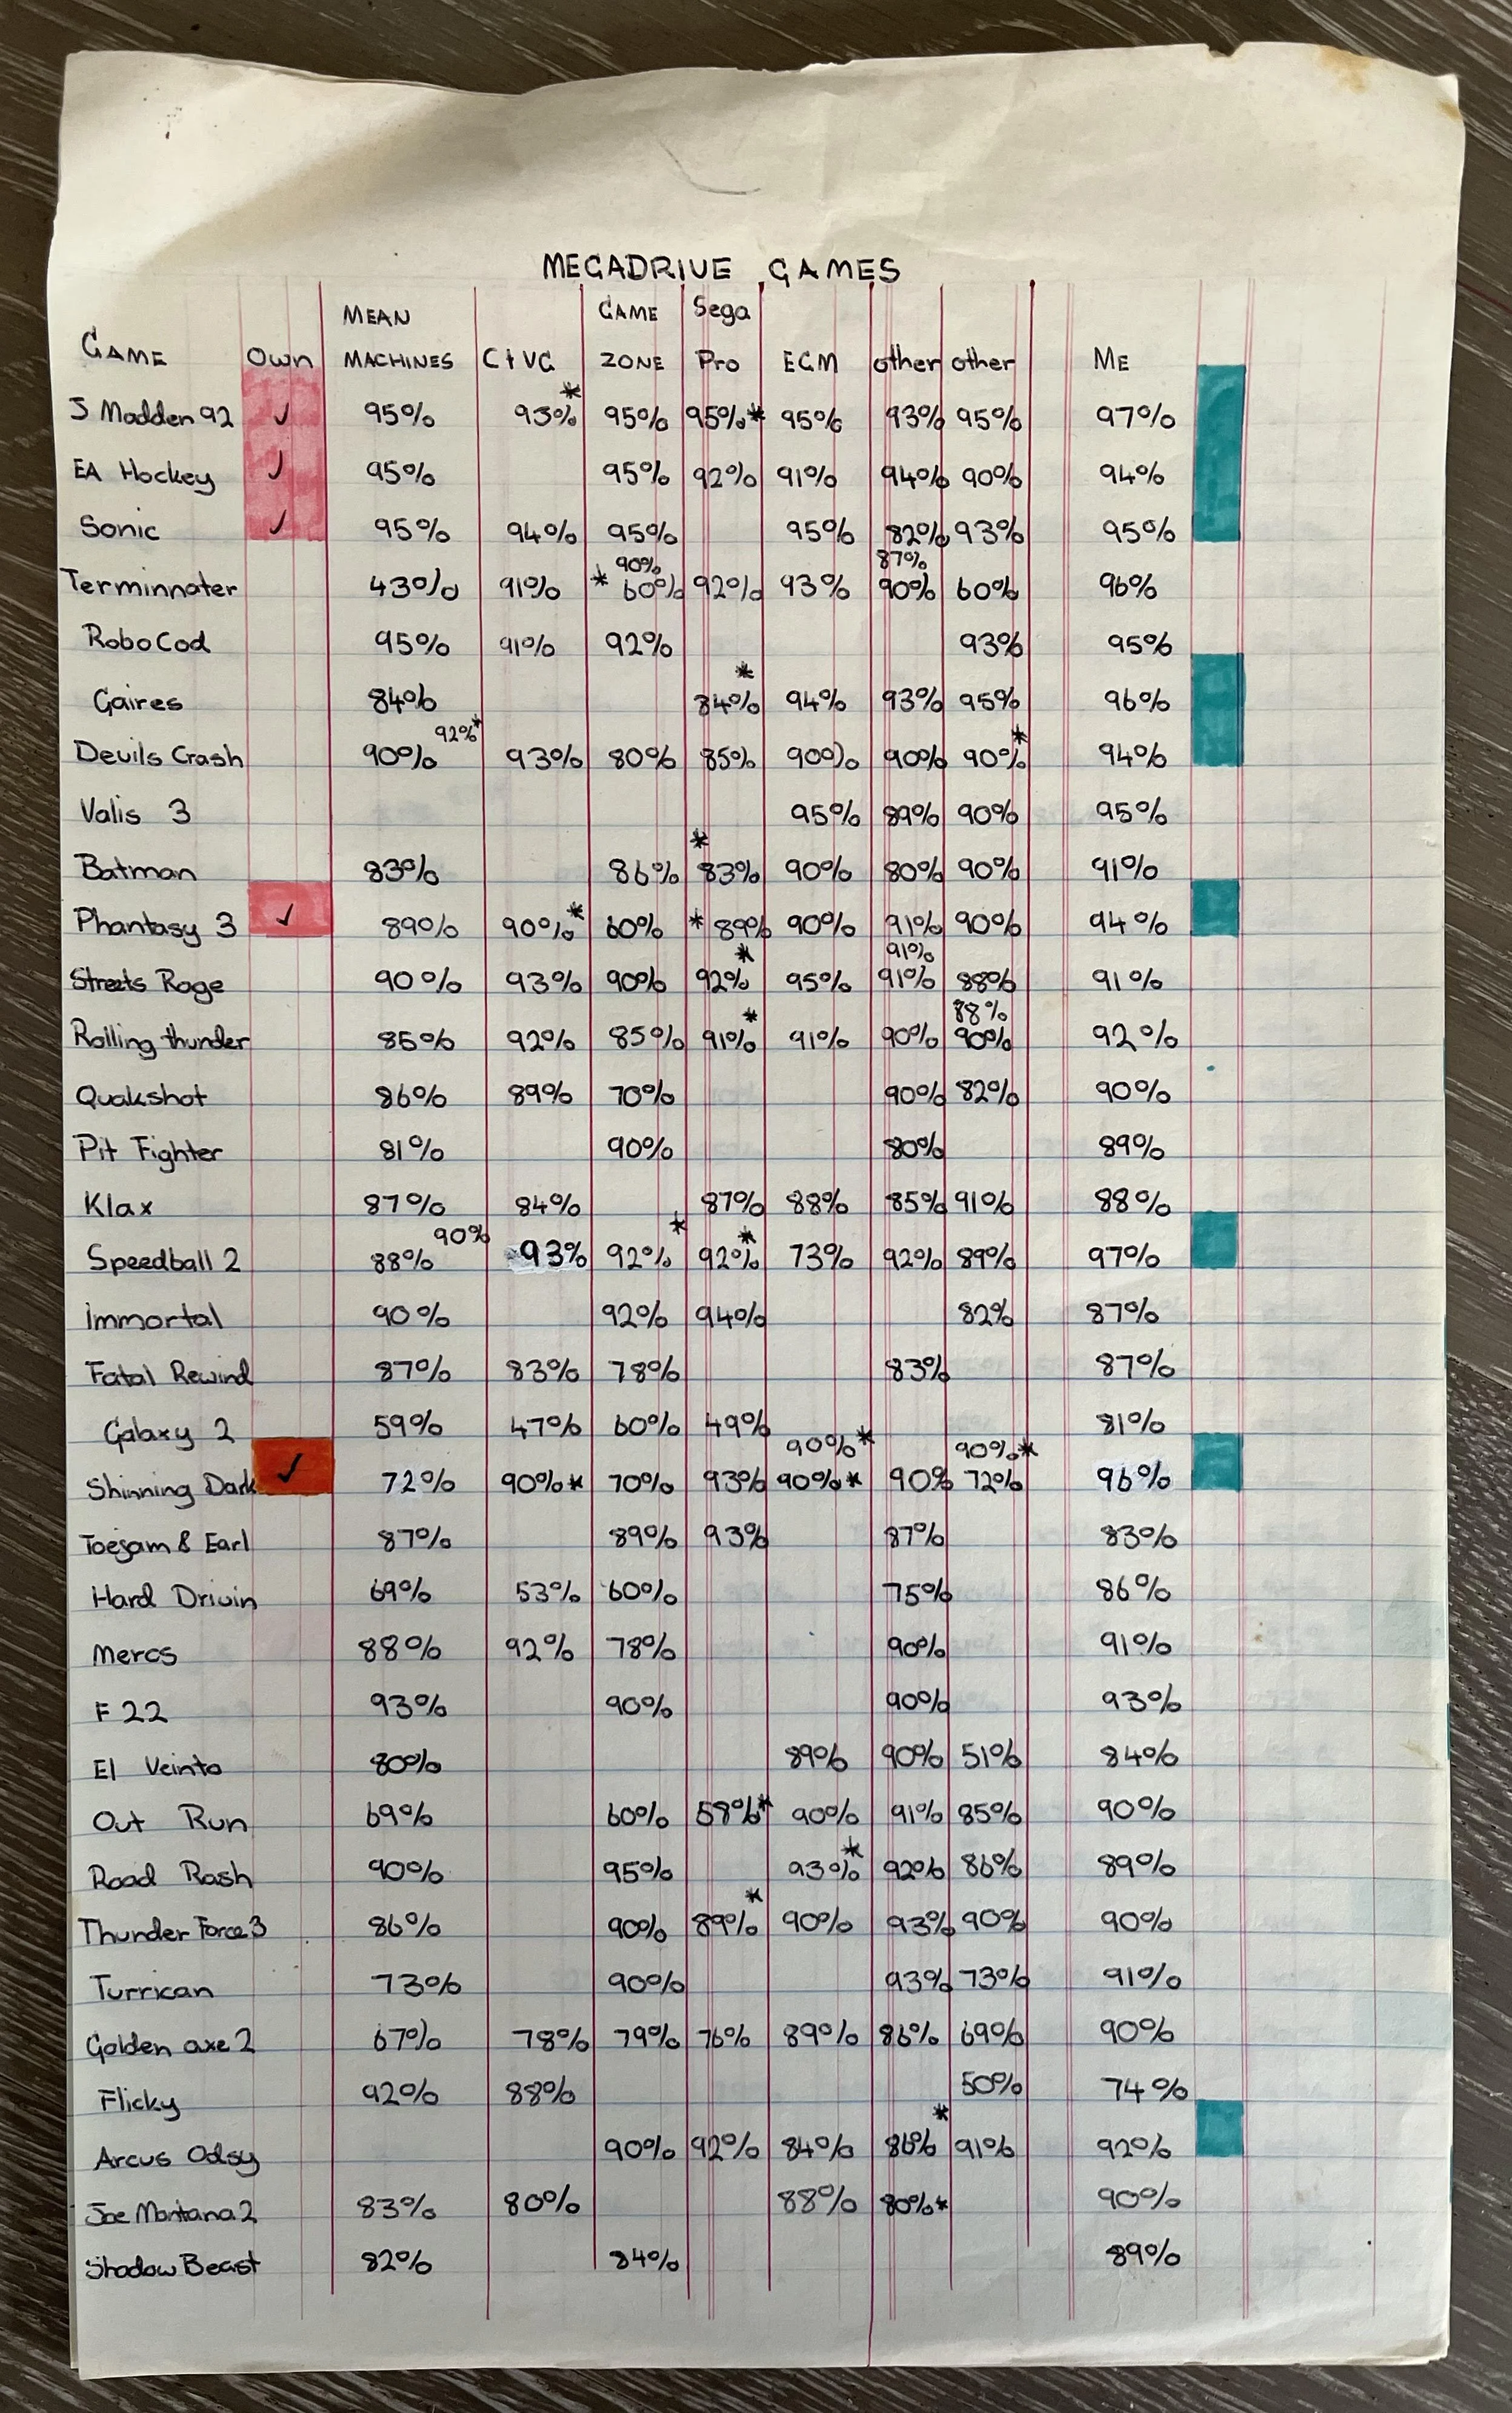 MEGADRIVE GAMES
MEAN GAME Sega
GAME Own MACHINES C+VG ZONE Pro EGM other other ME
J Madden 92 ✓ 95% 93%* 95% 95%* 95% 93% 95% 97%
EA Hockey ✓ 95% 95% 92% 91% 94% 90% 94%
Sonic ✓ 95% 94% 95% 95% 82% 93% 95%
90% 87%
Terminnater 43% 91% * 60% 92% 93% 90% 60% 96%
RoboCod 95% 91% 92% 93% 95%
Gaires 84% 84%* 94% 93% 95% 96%
92%*
Devils Crash 90% 93% 80% 85% 90% 90% 90%* 94%
Valis 3 95% 89% 90% 95%
Batman 83% 86% *83% 90% 80% 90% 91%
Phantasy 3 ✓ 89% 90%* 60% *89% 90% 91% 90% 94%
91%
Streets Rage 90% 93% 90% 92%* 95% 91% 88% 91%
88%
Rolling thunder 85% 92% 85% 91%* 91% 90% 90% 92%
Quakshot 86% 89% 70% 90% 82% 90%
Pit Fighter 81% 90% 80% 89%
Klax 87% 84% 87% 88% 85% 91% 88%
90%
Speedball 2 88% 93% 92%* 92%* 73% 92% 89% 97%
Immortal 90% 92% 94% 82% 87%
Fatal Rewind 87% 83% 78% 83% 87%
Galaxy 2 59% 47% 60% 49% 81%
90%* 90%*
Shinning Dark ✓ 72% 90%* 70% 93% 90%* 90% 72% 96%
Toejam & Earl 87% 89% 93% 87% 83%
Hard Drivin 69% 53% 60% 75% 86%
Mercs 88% 92% 78% 90% 91%
F 22 93% 90% 90% 93%
El Veinto 80% 89% 90% 51% 84%
Out Run 69% 60% 58%* 90% 91% 85% 90%
Road Rash 90% 95% 93%* 92% 86% 89%
Thunder Force 3 86% 90% 89%* 90% 93% 90% 90%
Turrican 73% 90% 93% 73% 91%
Golden axe 2 67% 78% 79% 76% 89% 86% 69% 90%
Flicky 92% 88% 50% 74%
Arcus Odsy 90% 92% 84% 86%* 91% 92%
Joe Montana 2 83% 80% 88% 80%* 90%
Shadow Beast 82% 84% 89%